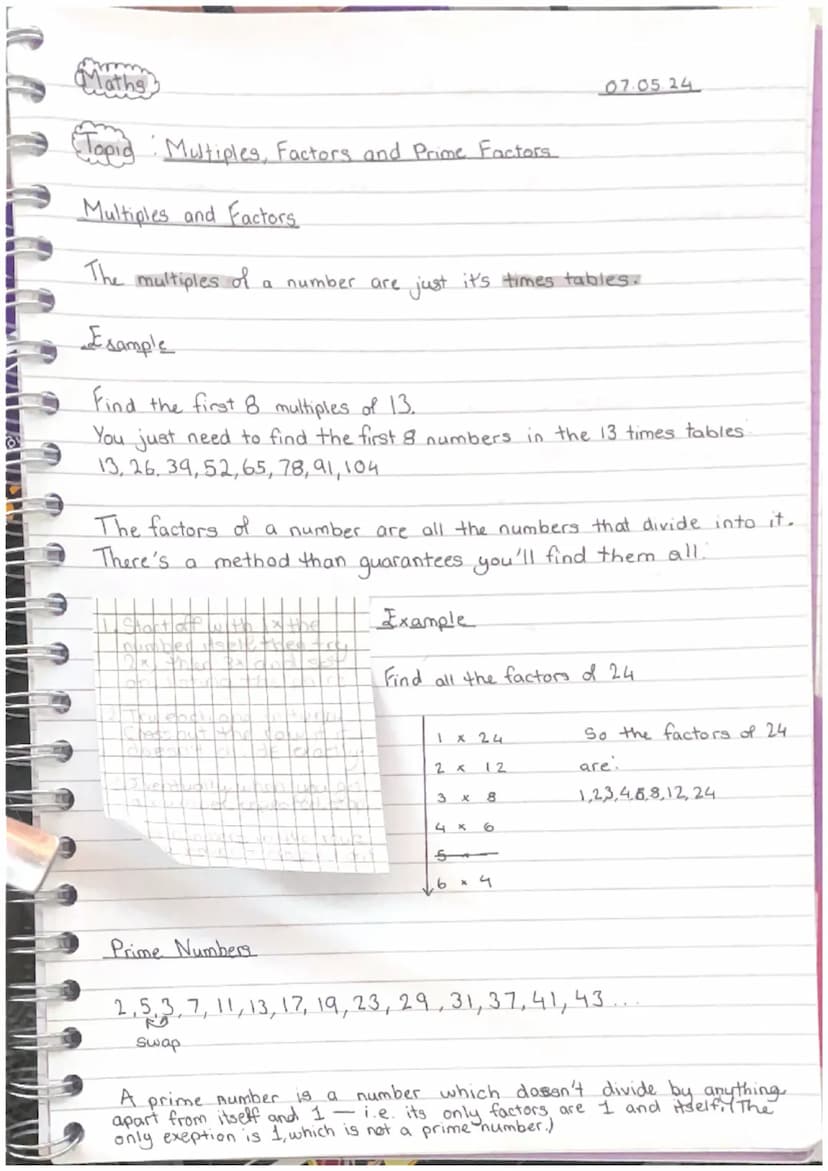 Maths
07.05.24
Topic : Multiples, Factors and Prime Factors
Multiples and Factors
The multiples of a number are just it's times tables.
Esample
Find the first 8 multiples of 13.
You just need to find the first 8 numbers in the 13 times tables
13, 26, 39, 52, 65, 78, 91, 104
The factors of a number are all the numbers that divide into it.
There's a method than guarantees you'll find them all.
1. Start off with 1x the
number itself then try
2x, then 3x and so
on
Example
Find all the factors of 24
1 x 24
2 x 12
3 x 8
4 x 6
5 —
6 x 4
So the factors of 24
are:
1,2,3,4,6,8,12,24
Prime Numbers
2,5,3,7,11,13,17,19,23,29,31,37,41,43...
swap
A prime number is a number which doesn't divide by anything
apart from itself and 1 — i.e. its only factors are 1 and itself. (The
only exeption is 1, which is not a prime number.)